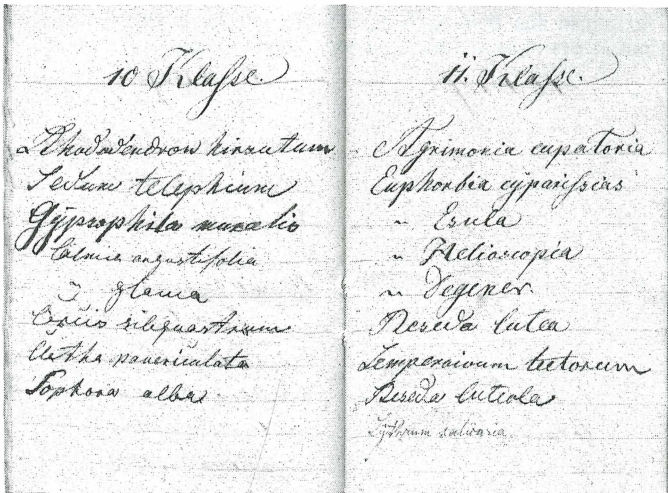 10 Klasse.
Rhododendron hirsutum
Sedum telephium
Gÿpsophila muralis
Calmia angustifolia
" glauca
Cercis siliquastrum
Clethra paniculata
Sophora alba
11. Klasse.
Agrimonia eupatoria
Euphorbia cÿparissias
" Esula
" Helioscopia
" Segener
Reseda lutea
Sempervivum tectorum
Reseda luteola
Lythrum salicaria